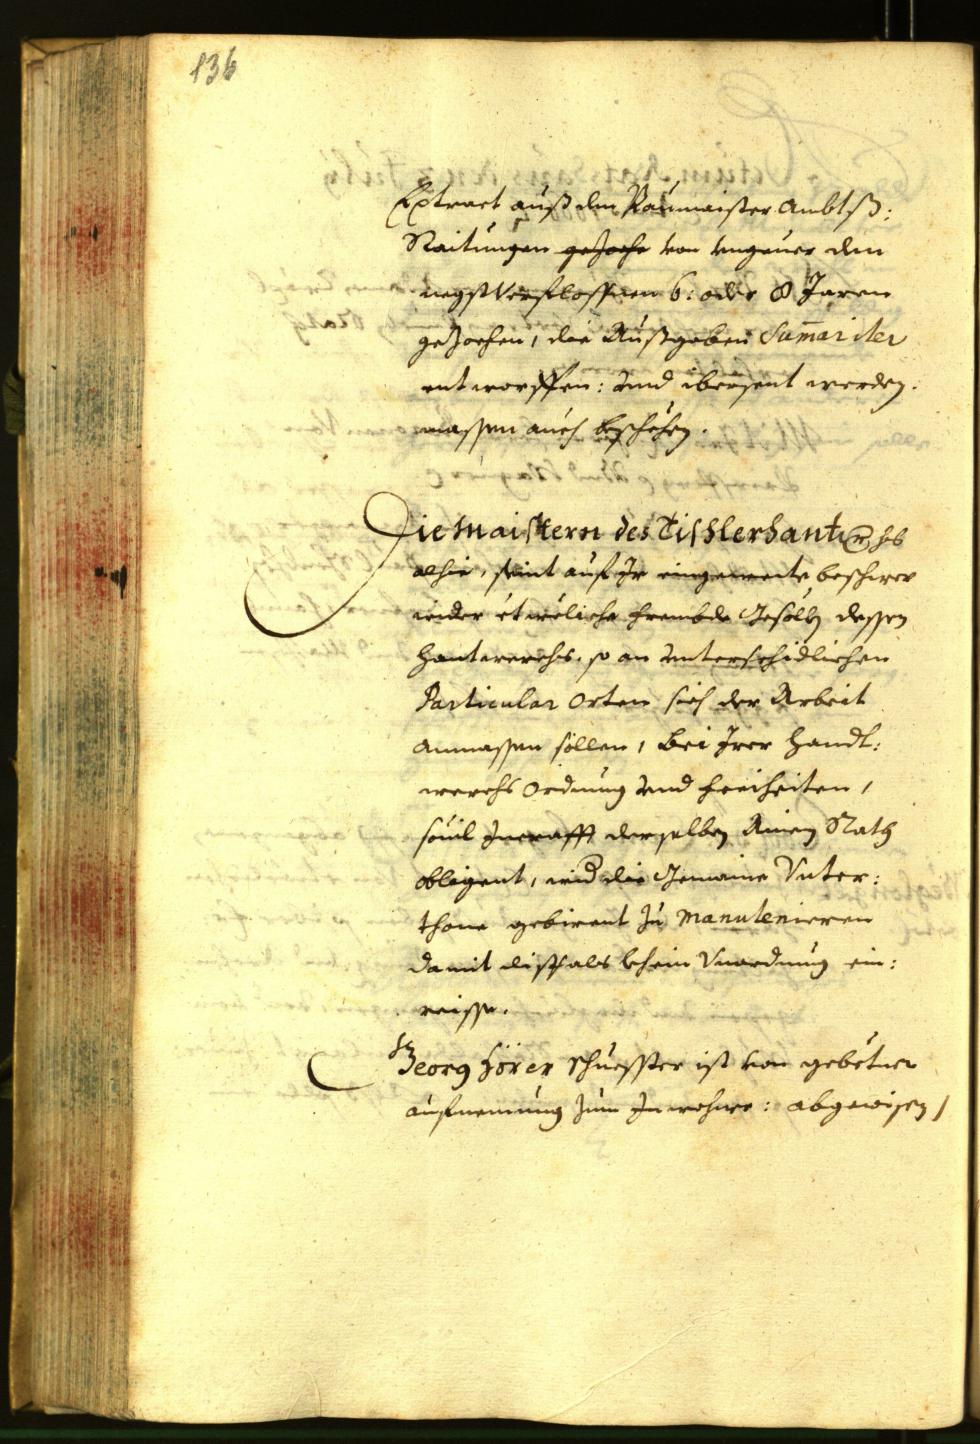 136
Extract auß den Paumaister Ambtß:
Raitungen gezoche von ungeuer den
negst verflossnen 6: oder 8 Jaren
gezochen, die Außgaben Sumariter
entworffen: und ibersent werden.
massen auch beschehen.
Die Maistern des Tischlerhantwerchs
alhie, seint auf Ir eingewente beschwer
wider etweliche frembde Gesölln dessen
Hantwerchs, so an unterschidlichen
Particular Orten sich der Arbeit
anmassen sollen, bei Irer Handt:
werchs Ordnung und freiheiten,
souil Incrafft derselben Ainen Rath
obligent, wid die Gemaine Unter:
thone gebirent zu manutenieren
damit dissfals khein Unordnung ein:
reisse.
Georg Hörer Schuesster ist von gebetner
aufnemung zum Inwohner: abgewisen,